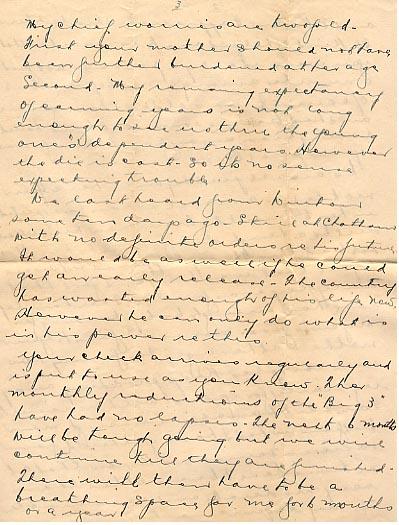 3
My chief worries are twofold -
First your mother should not have
been further burdened at her age
Second - My remaining expectancy
of earning years is not long
enough to see us thru the young
one's dependent years. However
the die is cast - So it's no sense
expecting trouble.
We last heard from
some ten days ago. Still at Chatham
with no definite orders re his future
It would be as well if he could
get an early release - The country
has wasted enough of his life now.
However he can only do what is
in his power re this.
Your check arrives regularly and
is put to use as you know. The
monthly reductions of the "Big 3"
have had no lapses. The next 6 months
will be tough going but we will
continue till they are finished -
There will then have to be a
breathing space for me for 6 months
or a year